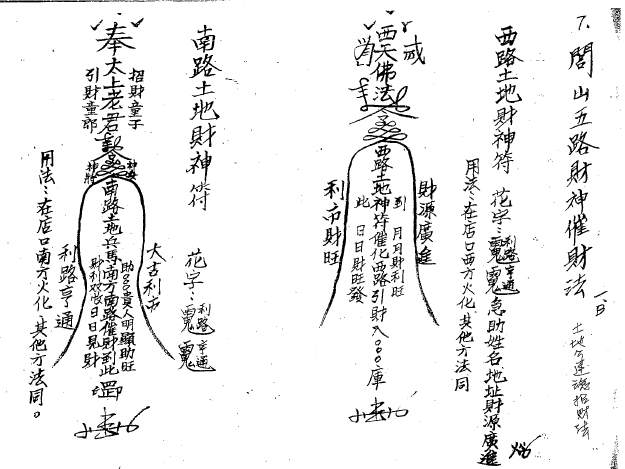 7. 閭山五路財神催財法
土地公運魂招財法
西路土地財神符 花字:利路亨通 急助姓名地址財源廣進
用法:在店口西方火化 其他方法同
西天佛法
財源廣進
到 月月財利旺
西路土地神符催化西路引財入ooo庫
此 日日財旺發
利市財旺
南路土地財神符 花字:利路亨通
招財童子
奉太上老君
引財童郎
大吉利市
助ooo貴人明顯助旺
南路土地兵馬南方南路催財到此
日日見財
利路亨通
用法:在店口南方火化 其他方法同。